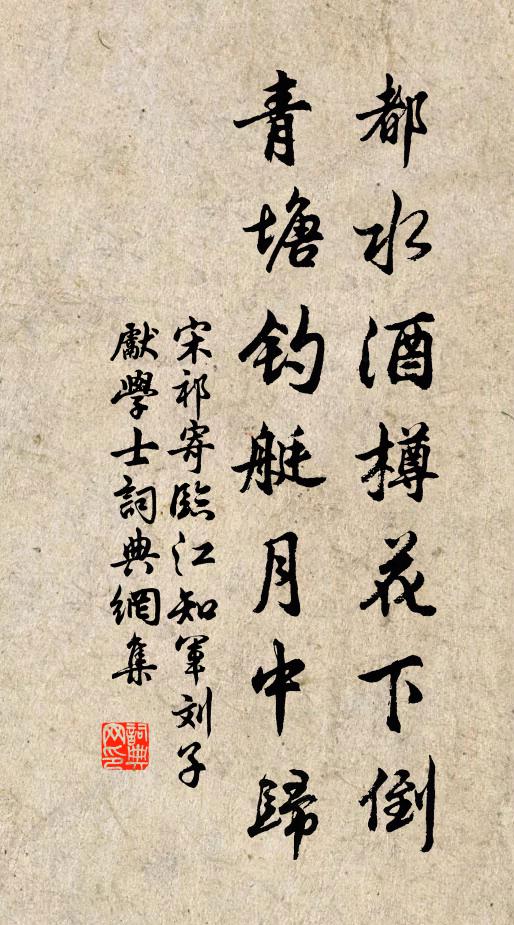 都水酒樽花下倒
青塘钓艇月中歸
宋祁寄臨江知軍刘子
獻學士詞典網集
詞典网印